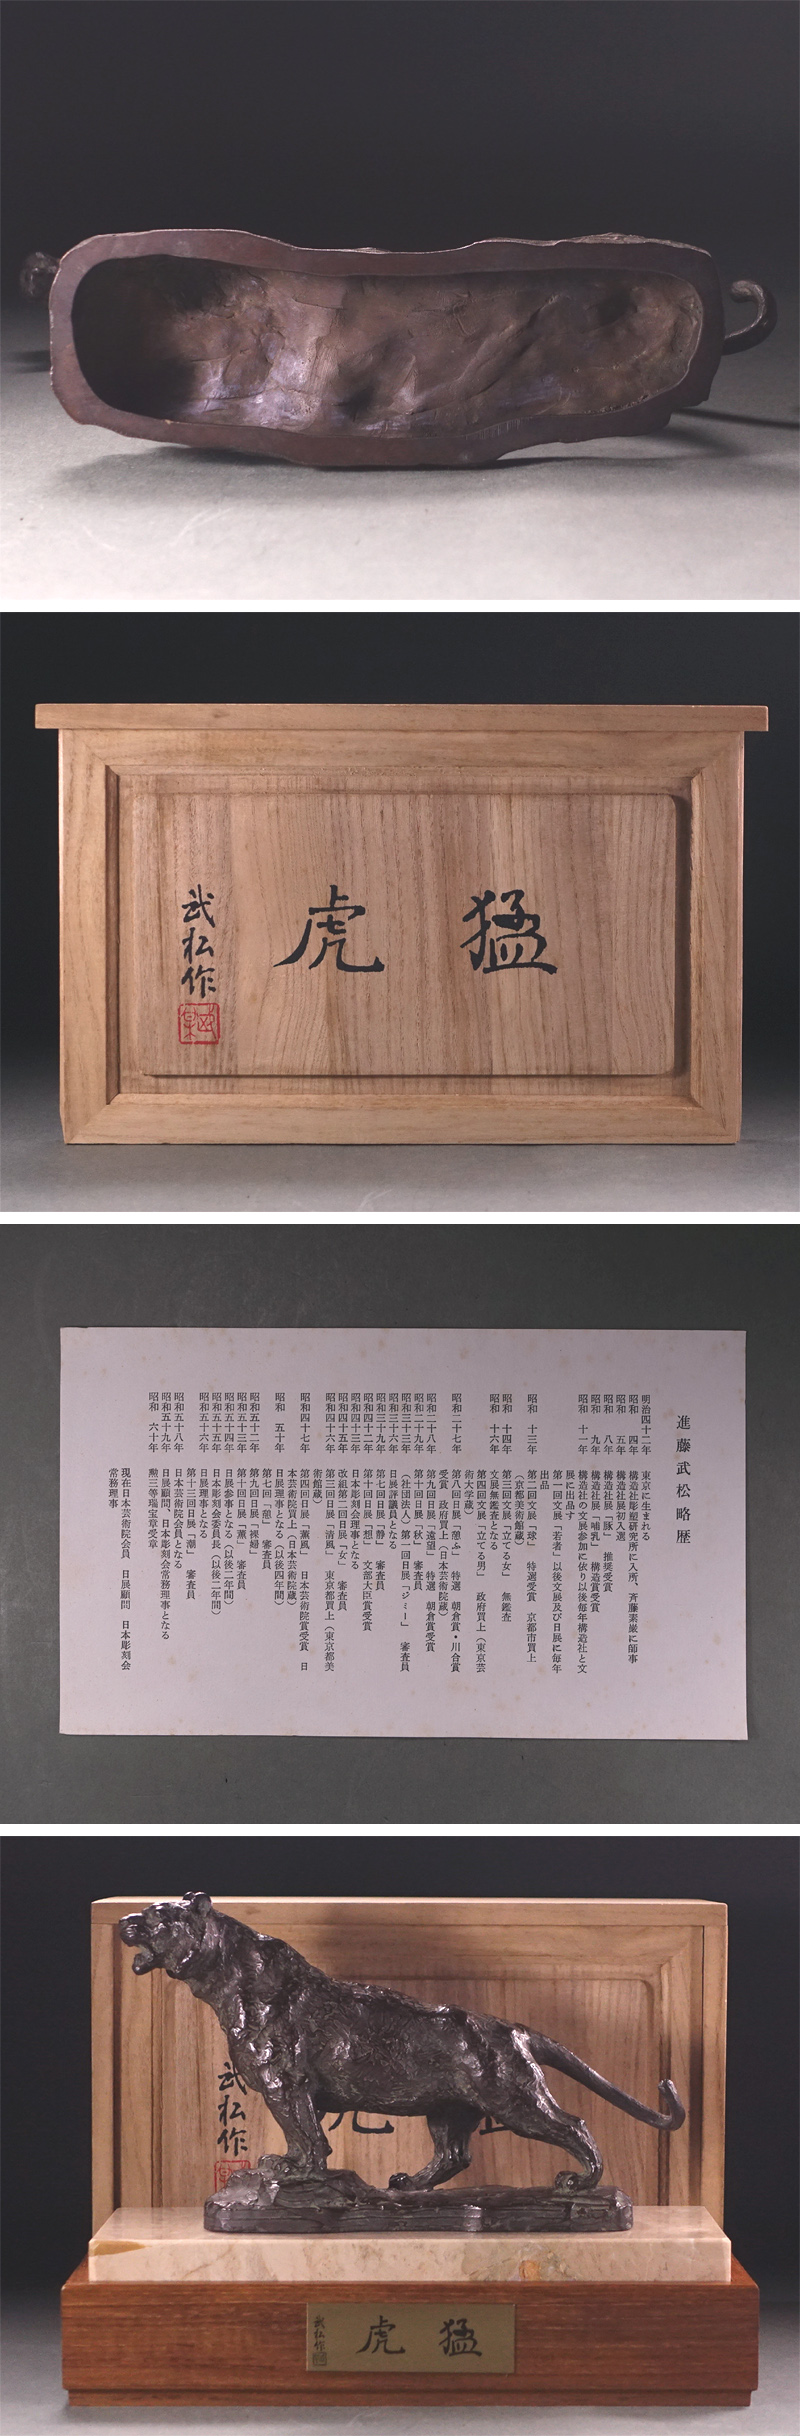 猛虎
武松作
進藤武松略歴
明治四十二年 東京に生まれる
昭和 四年 構造社彫塑研究所に入所、斉藤素巌に師事
昭和 五年 構造社展初入選
昭和 八年 構造社展「豚」 推奨受賞
昭和 九年 構造社展「哺乳」 構造賞受賞
昭和 十一年 構造社の文展参加に依り以後毎年構造社と文
展に出品す
第一回文展「若者」以後文展及び日展に毎年
出品
昭和 十三年 第二回文展「球」 特選受賞 京都市買上
(京都美術館蔵)
昭和 十四年 第三回文展「立てる女」 無鑑査
昭和 十六年 文展無鑑査となる
第四回文展「立てる男」 政府買上(東京芸
術大学蔵)
昭和二十七年 第八回日展「憩ふ」 特選 朝倉賞・川合賞
受賞 政府買上(日本芸術院蔵)
昭和二十八年 第九回日展「遠望」 特選 朝倉賞受賞
昭和二十九年 第十回日展「秋」 審査員
昭和三十三年 (社団法人)第一回日展「ジミー」 審査員
昭和三十六年 日展評議員となる
昭和三十九年 第七回日展「静」 審査員
昭和四十二年 第十回日展「想」 文部大臣賞受賞
昭和四十三年 日本彫刻会理事となる
昭和四十五年 改組第二回日展「女」 審査員
昭和四十六年 第三回日展「清風」 東京都買上(東京都美
術館蔵)
昭和四十七年 第四回日展「薫風」 日本芸術院賞受賞 日
本芸術院買上(日本芸術院蔵)
昭和 五十年 日展理事となる(以後四年間)
第七回「憩」 審査員
昭和五十二年 第九回日展「裸婦」
昭和五十三年 第十回日展「薫」 審査員
昭和五十四年 日展参事となる(以後二年間)
昭和五十五年 日本彫刻会委員長(以後二年間)
昭和五十六年 日展理事となる
第十三回日展「潮」 審査員
昭和五十八年 日本芸術院会員となる
昭和五十九年 日展顧問、日本彫刻会常務理事となる
昭和 六十年 勲三等瑞宝章受章
現在日本芸術院会員 日展顧問 日本彫刻会
常務理事
武松作
猛虎
武松作